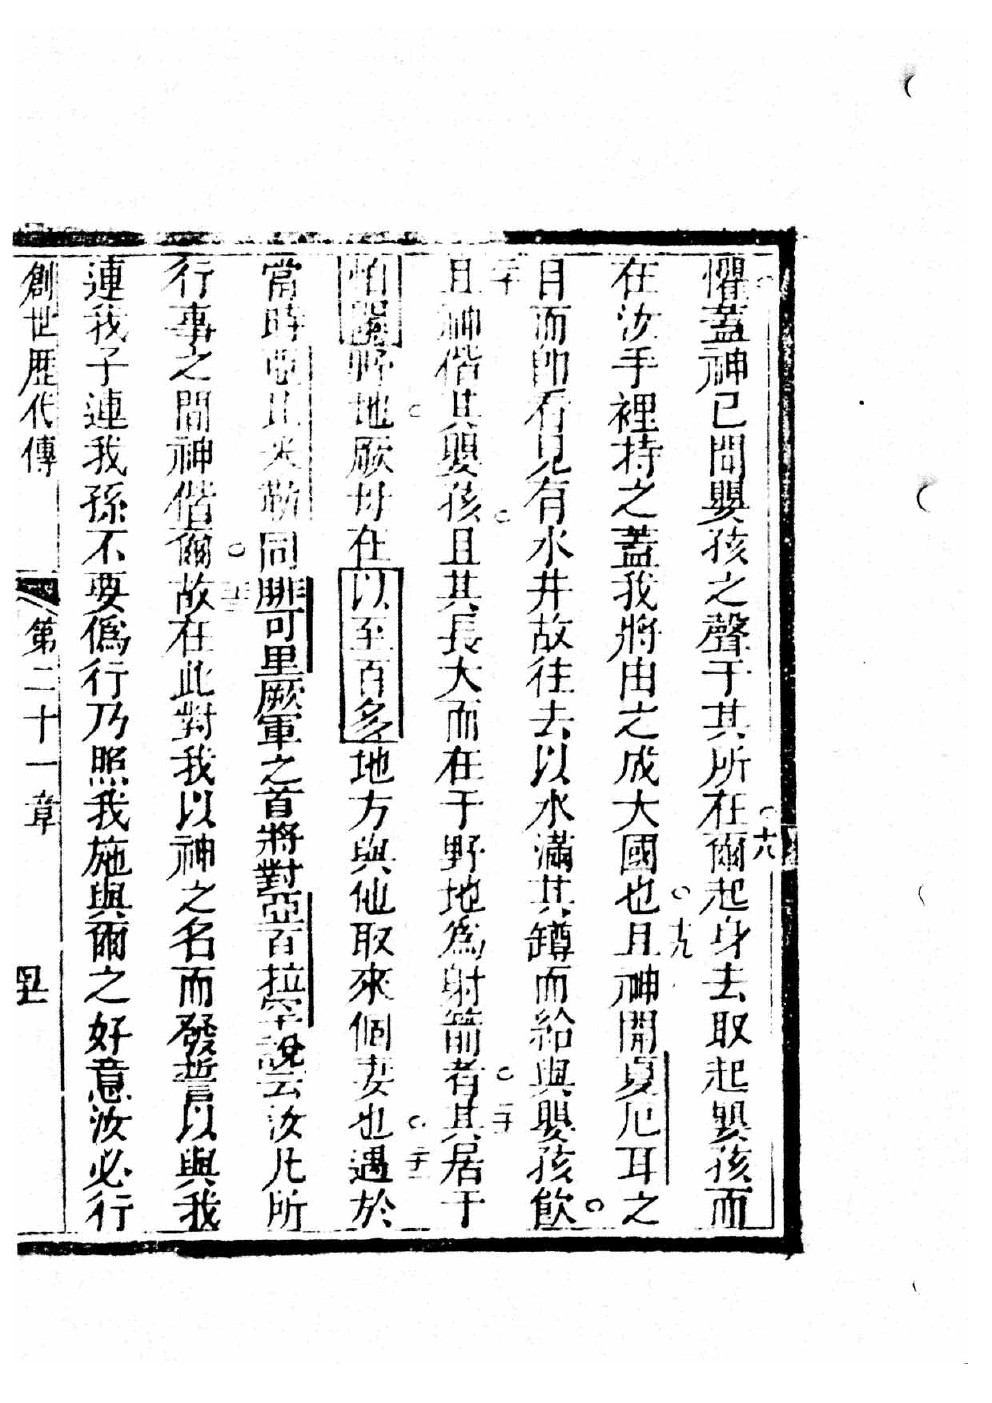 懼蓋神已聞嬰孩之聲于其所在十八爾起身去取起嬰孩而
在汝手裡持之蓋我將由之成大國也十九且神開夏厄耳之
目而即看見有水井故往去以水滿其罇而給與嬰孩飲
二十且神偕其嬰孩且其長大而在于野地為射箭者二十一其居于
怕蘭野地厥母在以至百多地方與他取來個妻也二十二遇於
當時亞比米勒同腓可里厥軍之首將對亞百拉罕說云汝凡所
行事之間神偕爾二十三故在此對我以神之名而發誓以與我
連我子連我孫不要僞行乃照我施與爾之好意汝必行
創世歷代傳 第二十一章